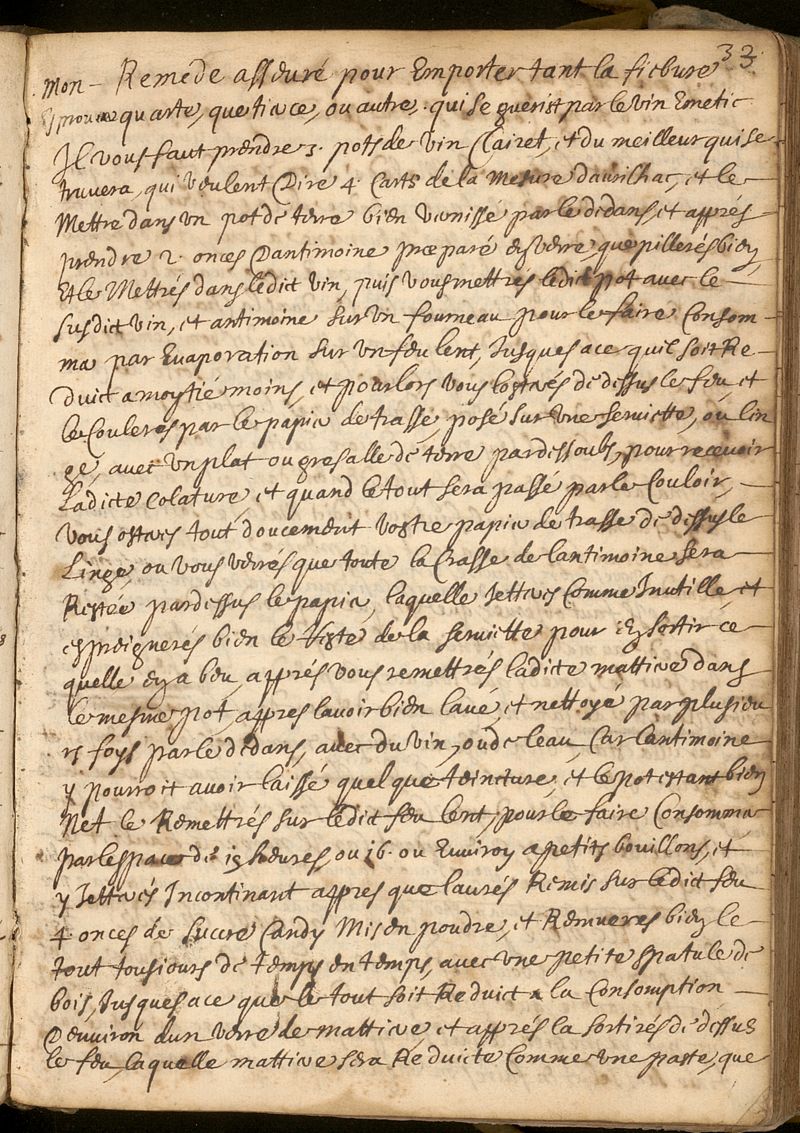 33
mon – Remede asseuré pour Emporter tant la fiebure
Esprouue quarte, que tierce, ou autre, qui se guerist par le vin Emetic
Il vous faut prendre 3. pots de vin Clairet, et du meilleur qui se
truvera, qui veulent Dire 4. Carts de la Mesure daurilhac, et le
Mettre dans vn pot de terre bien vernissé par le dedans, et apprés
prendre 2. onces Dantimoine præparé en verre, que pillerés bien,
Et le Mettrés dans ledict vin, puis vous mettrés ledict pot auec le
susdict vin, et antimoine sur vn fourneau pour le faire Consom-
mer par Euaporation sur vn feu lent, Jusques a ce quil soit Re-
duict a moytié moins, et pour lors vous losterés de dessus le feu, et
le Coulerés par le papier de trasse, posé sur vne seruiette, ou lin
ge, auec vn plat ou gresalle de terre par dessoubs, pour receuoir
Ladicte Colature, et quand le tout sera passé par le Couloir,
vous osterés tout doucement vostre papier de trasse de dessus le
Linge, ou vous verrés que toute la Crasse de lantimoine sera
Restée par dessus le papier, laquelle Jetterés Comme Inutille, et
espreignerés bien le reste de la seruiette pour En sortir ce
quelle en a beu, apprés vous remettrés ladicte mattiere dans
le mesme pot, appres lauoir bien laué, et nettoyé par plusieu
rs foys par le dedans, auec du vin, ou de leau, Car lantimoine
y pourroit auoir laissé quelque teincture, et le pot estant bien
Net le Remettrés sur ledict feu lent, pour le faire Consommer
par lespace de 15 heures, ou 16. ou Enuiron a petits bouillons, et
y Jetterés Incontinant appres que laurés Remis sur ledict feu
4. onces de succre Candy Mis en poudre, et Remuerés bien le
tout tousiours de temps en temps, auec vne petite spatule de
bois, Jusques a ce que le tout soit Reduict a la Consomption
Denuiron dun verre de mattiere et apprés la sortirés de dessus
le feu, laquelle mattiere sera Reduicte Comme vne paste, que